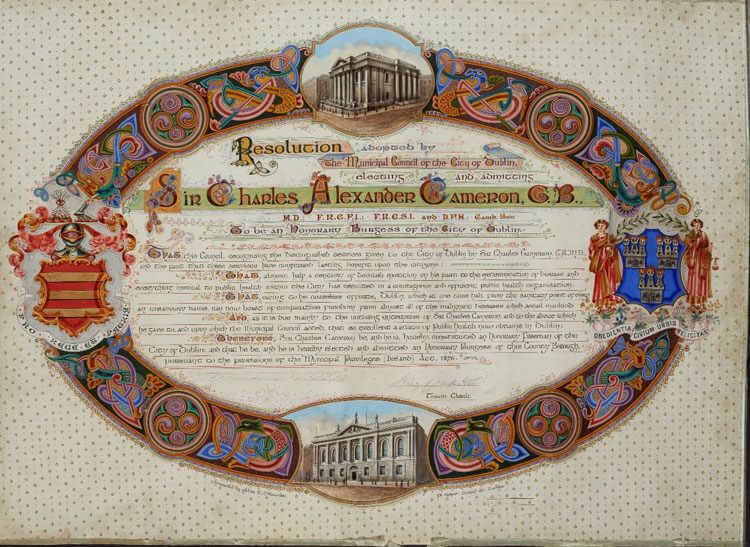 Resolution adopted by
the Municipal Council of the City of Dublin,
electing and admitting
Sir Charles Alexander Cameron, C.B.,
M.D., F.R.C.P.I.; F.R.C.S.I. and D.P.H.: Camb. Univ.
To be an Honorary Burgess of the City of Dublin.
That this Council, recognising the distinguished services given to the City of Dublin by Sir Charles Cameron, C.B., M.D.,
and the fact that those services have conferred lasting benefit upon the citizens:
That almost half a century of devoted exertion on his part to the extermination of disease and
everything inimical to public health within the City has resulted in a courageous and efficient public health organisation.
That, owing to his ceaseless efforts, Dublin, which at one time had, from the sanitary point of view,
an unsavoury name, can now boast of comparative immunity from almost all of the malignant diseases which assail mankind
And, as it is due mainly to the untiring enterprise of Sir Charles Cameron, and to the advice which
he gave to, and upon which the Municipal Council acted, that so excellent a state of Public Health now obtains in Dublin:
Therefore, Sir Charles Cameron be, and is, hereby, constituted an Honorary Freeman of the
City of Dublin; and that he be, and he is hereby elected and admitted an Honorary Burgess of this County Borough,
pursuant to the provisions of the Municipal Privileges (Ireland) Act, 1876.
Town Clerk.
PRO REGE ET
OBEDIENTIA CIVIUM URBIS FELICITAS